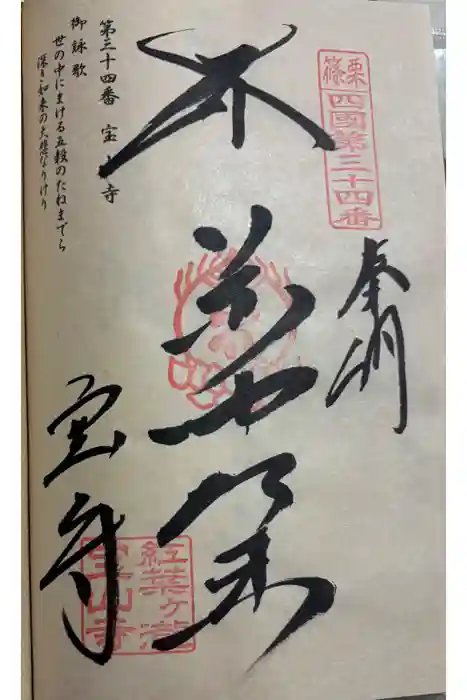 篠栗
四國第三十四番
奉納
紅葉ヶ滝
宝山寺
宝山寺
第三十四番 宝山寺
御詠歌
世の中にまける五穀のたねまでら
深き如来の大悲なりけり